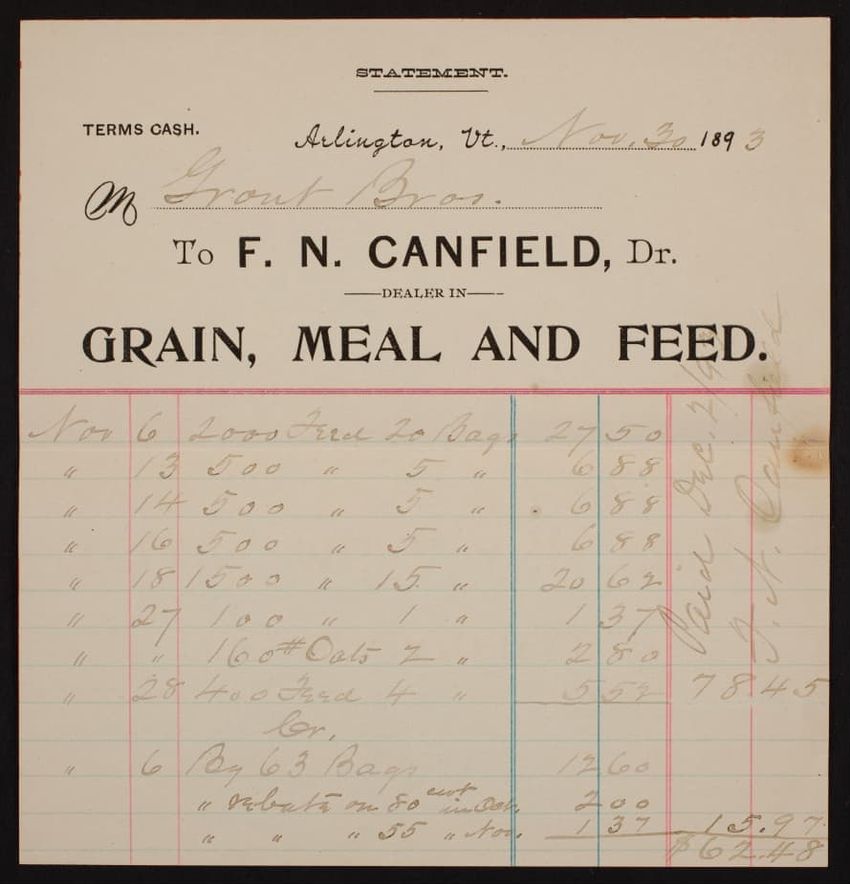 STATEMENT.
TERMS CASH.
Arlington, Vt., Nov. 30 1893
M Grout Bros.
To F. N. CANFIELD, Dr.
DEALER IN
GRAIN, MEAL AND FEED.
Nov 6 2000 Feed 20 Bags 27 50
" 13 500 " 5 " 6 88
" 14 500 " 5 " 6 88
" 16 500 " 5 " 6 88
" 18 1500 " 15 " 20 62
" 27 100 " 1 " 1 37
" " 160# Oats 2 " 2 80
" 28 400 Feed 4 " 5 52 78 45
Cr.
" 6 By 63 Bags 12 60
" rebate on 80 cwt in Oct. 2 00
" " " 55 " Nov. 1 37 15.97
$62.48
Paid Dec. 2/93
F. N. Canfield